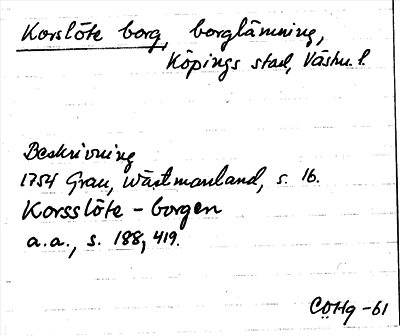 Korslöte borg, borglämning,
Köpings stad, Västm. l.
Beskrivning
1754 Grau, Wästmanland, s. 16.
Korsslöte - borgen
a.a., s. 188, 419.
CÖHg -61